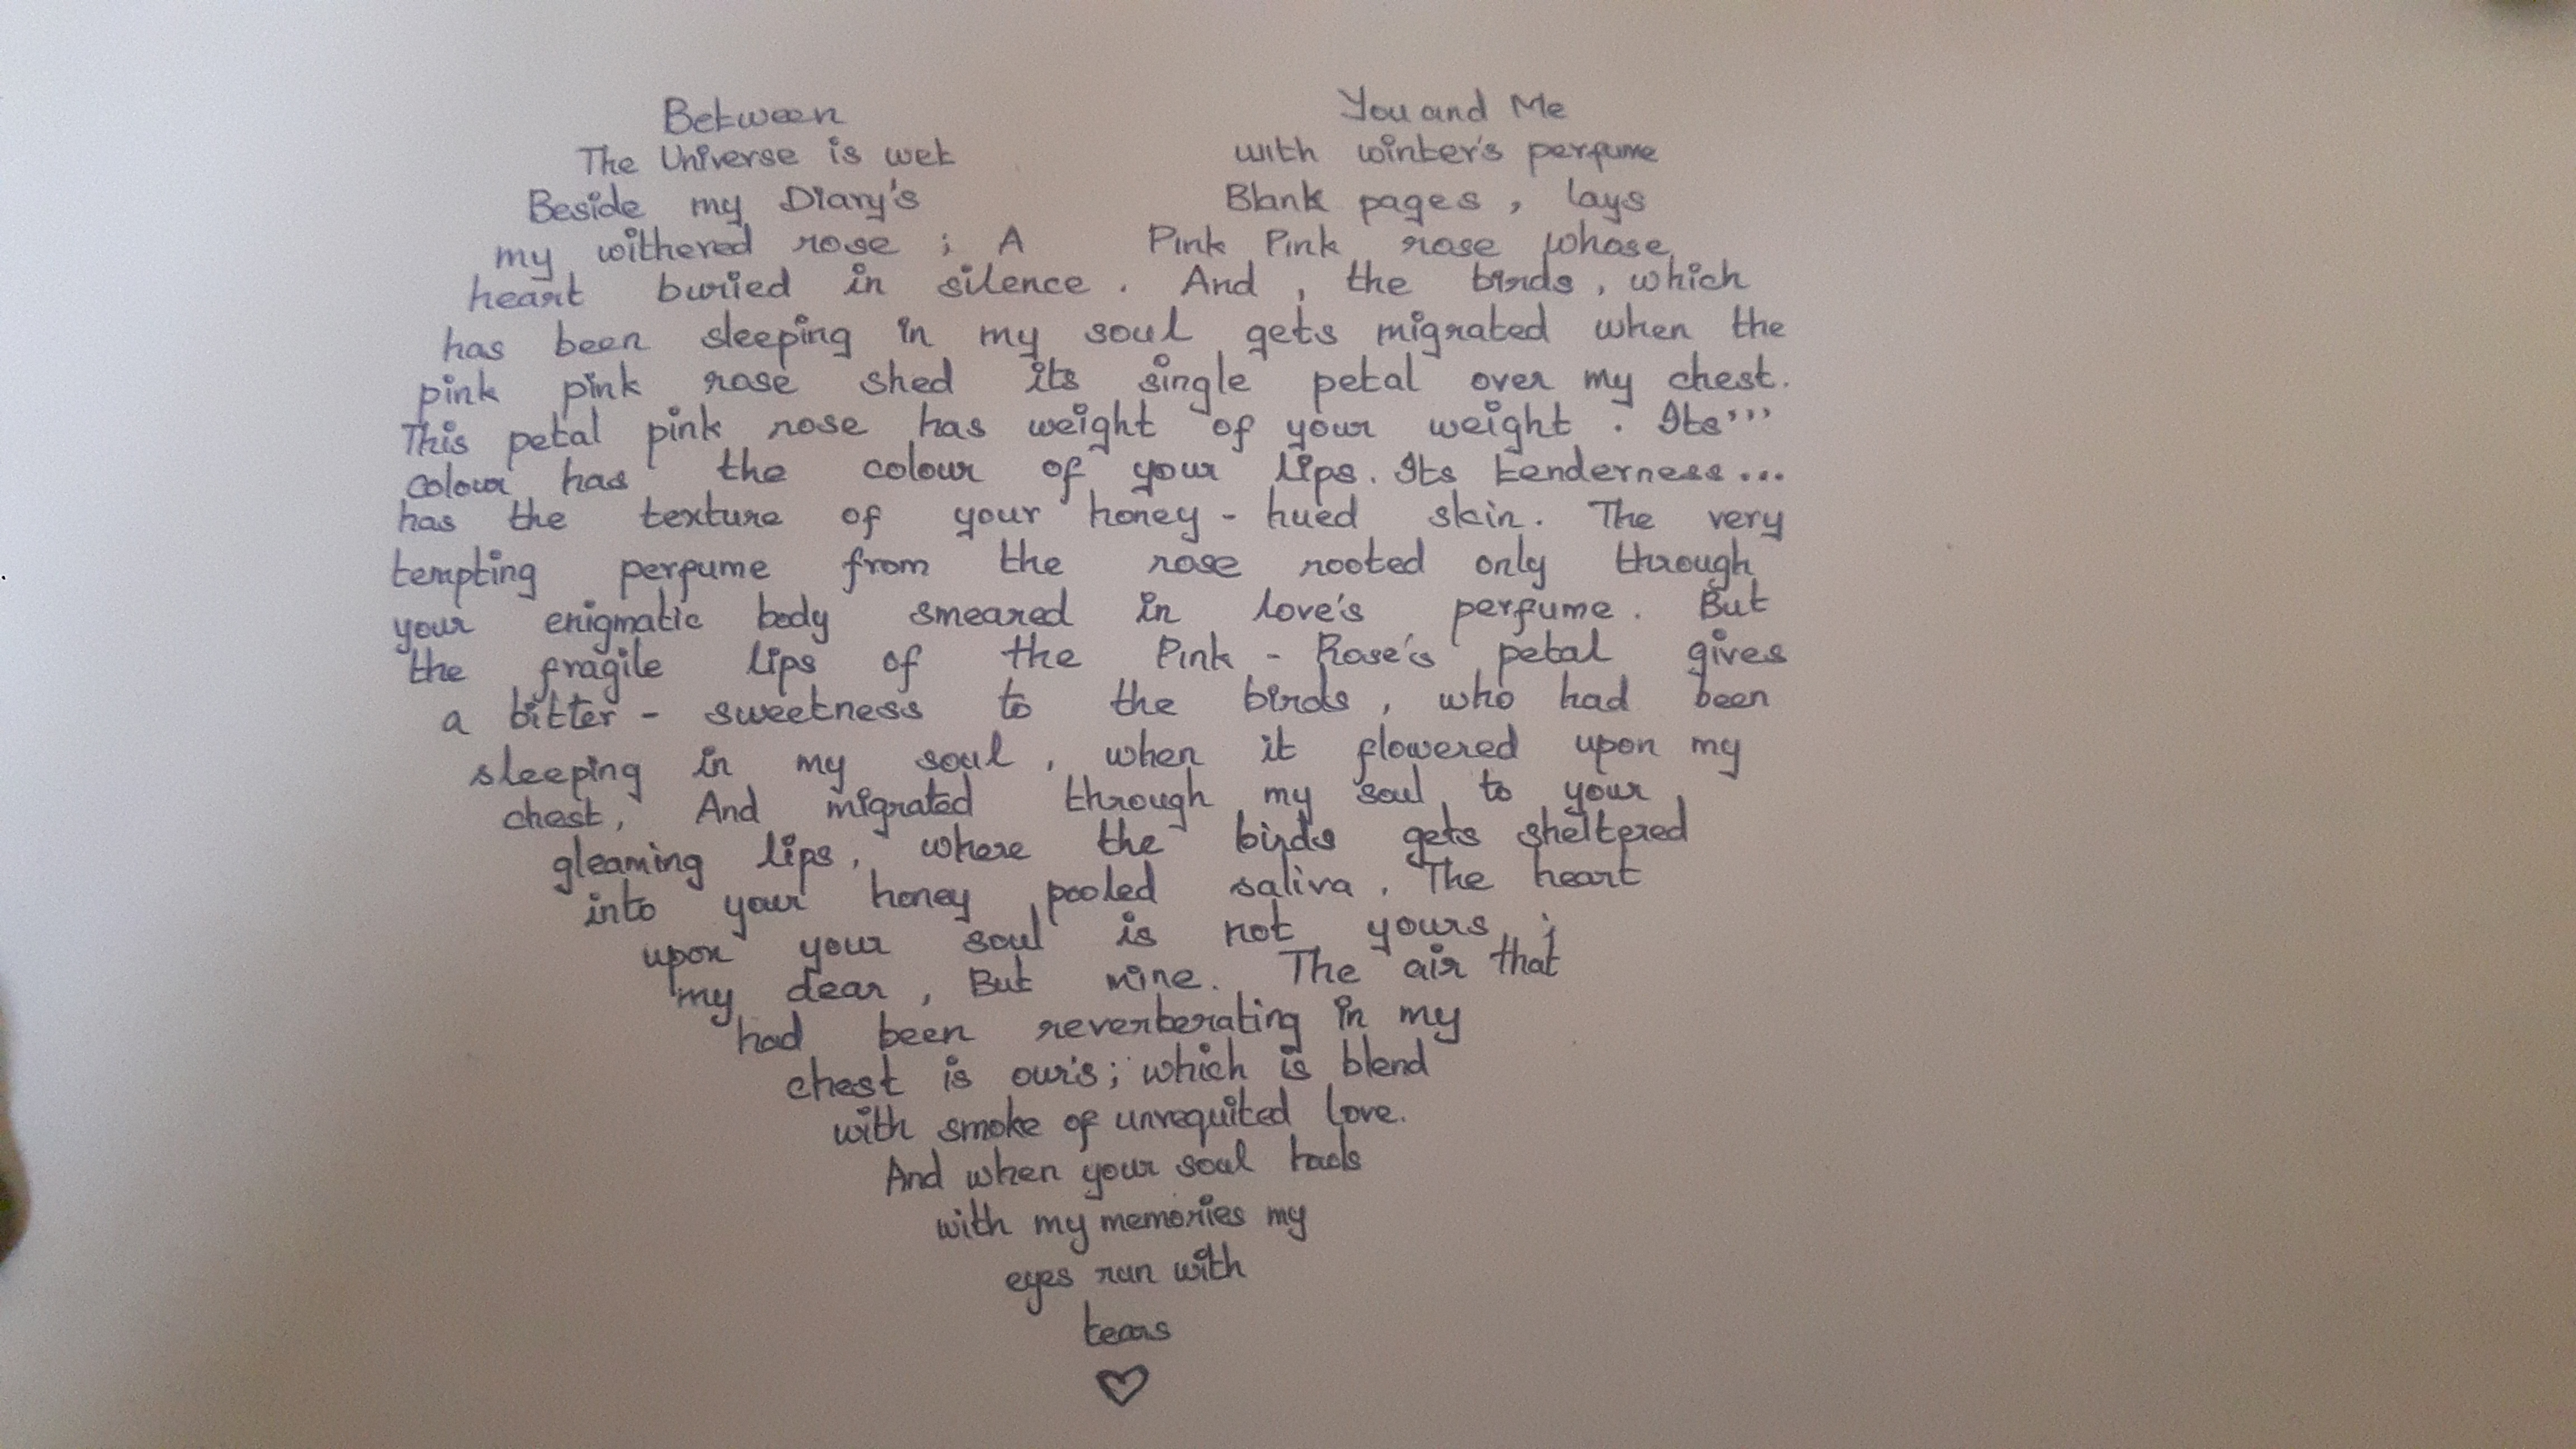 Between You and Me
The Universe is wet with winter's perfume
Beside my Diary's Blank pages, lays
my withered rose ; A Pink Pink rose whose
heart buried in silence. And, the birds, which
has been sleeping in my soul gets migrated when the
pink pink rose shed its single petal over my chest.
This petal pink rose has weight of your weight. Its'''
colour has the colour of your lips. Its tenderness...
has the texture of your honey-hued skin. The very
tempting perfume from the rose rooted only through
your enigmatic body smeared in love's perfume. But
the fragile lips of the Pink-Rose's petal gives
a bitter-sweetness to the birds, who had been
sleeping in my soul, when it flowered upon my
chest, And migrated through my soul to your
gleaming lips, where the birds gets sheltered
into your honey pooled saliva. The heart
upon your soul is not yours ;
my dear, But mine. The air that
had been reverberating in my
chest is our's; which is blend
with smoke of unrequited love.
And when your soul
with my memories my
eyes run with
tears